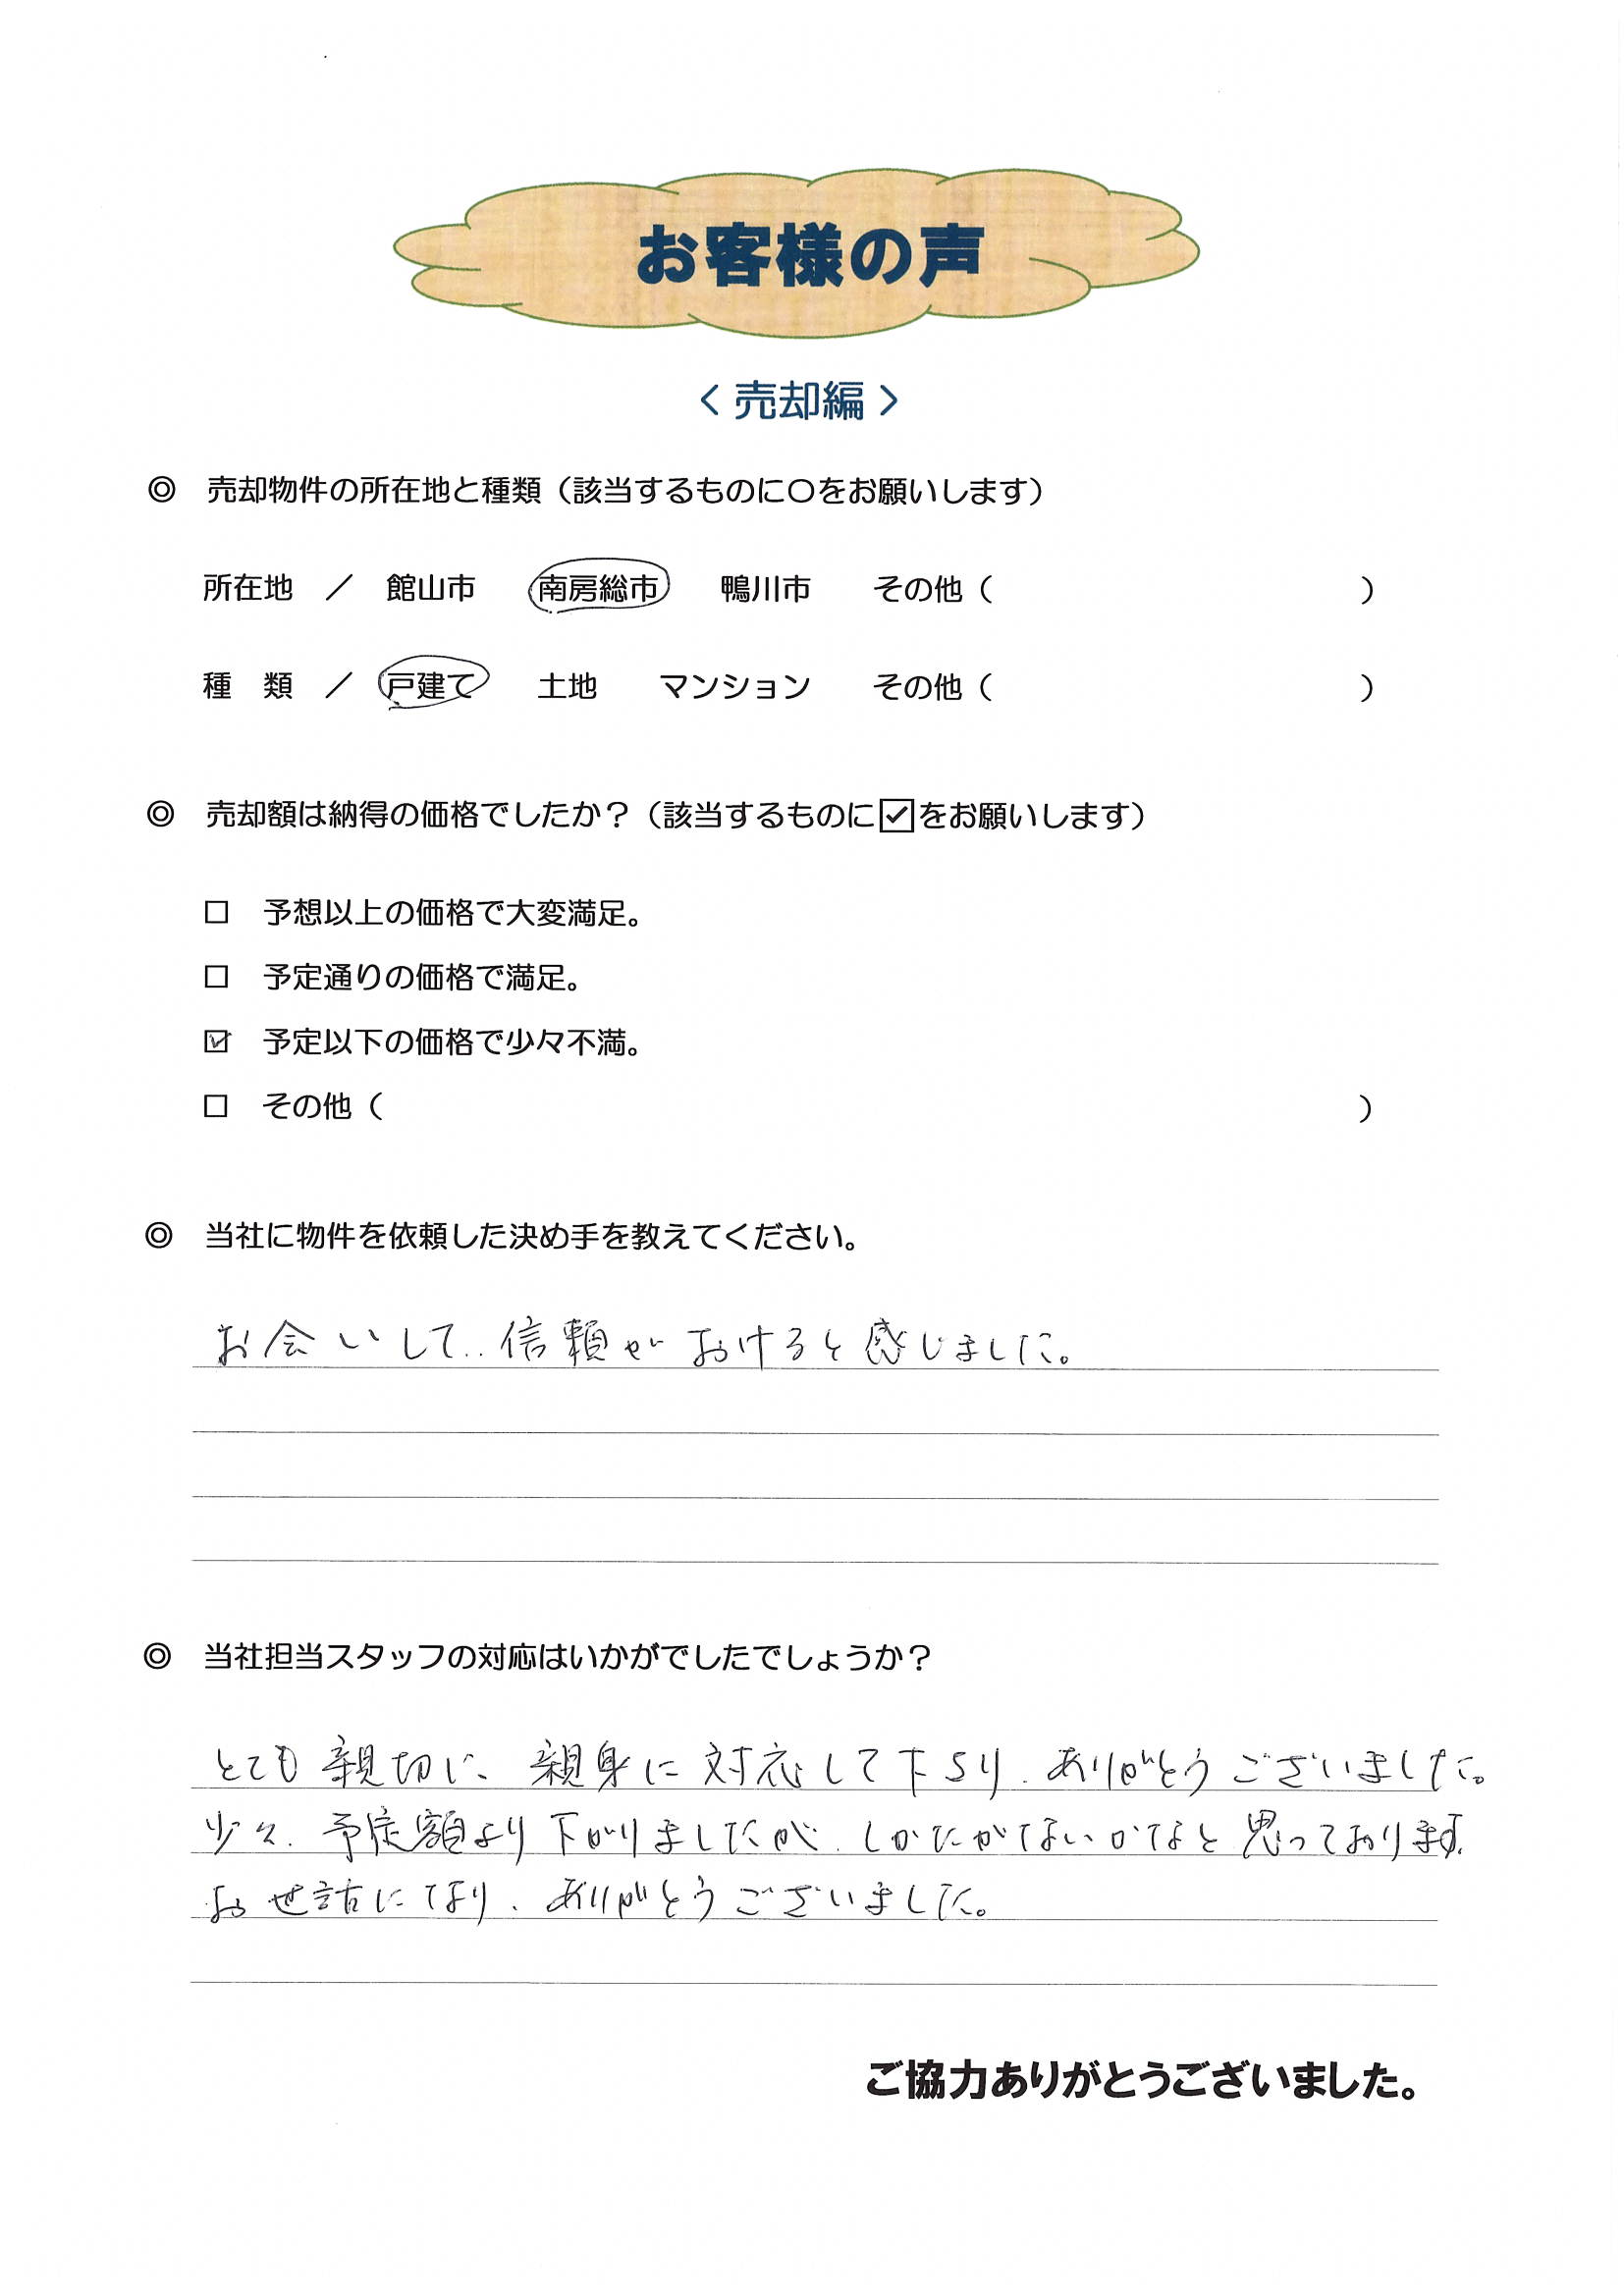 お客様の声
〈 売却編 〉
◎ 売却物件の所在地と種類（該当するものに〇をお願いします）
所在地 ／ 館山市 南房総市 鴨川市 その他（ ）
種 類 ／ 戸建て 土地 マンション その他（ ）
◎ 売却額は納得の価格でしたか？（該当するものに☑をお願いします）
□ 予想以上の価格で大変満足。
□ 予定通りの価格で満足。
☑ 予定以下の価格で少々不満。
□ その他（ ）
◎ 当社に物件を依頼した決め手を教えてください。
お会いして、信頼がおけると感じました。
◎ 当社担当スタッフの対応はいかがでしたでしょうか？
とても親切に、親身に対応して下さり、ありがとうございました。
少々、予定額より下がりましたが、しかたがないかなと思っております。
お世話になり、ありがとうございました。
ご協力ありがとうございました。